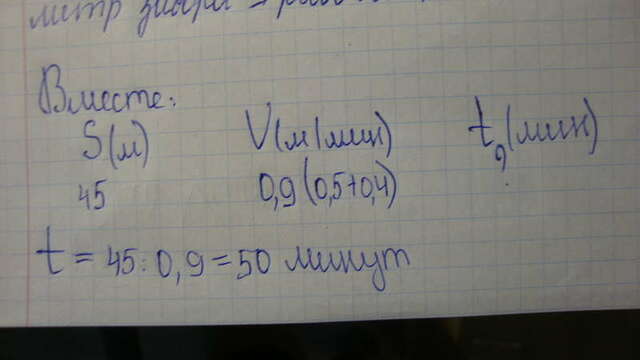 метр
Вместе:
S(м) V(м/мин) t, (мин)
45 0,9(0,5+0,4) ?
t = 45:0,9=50 минут